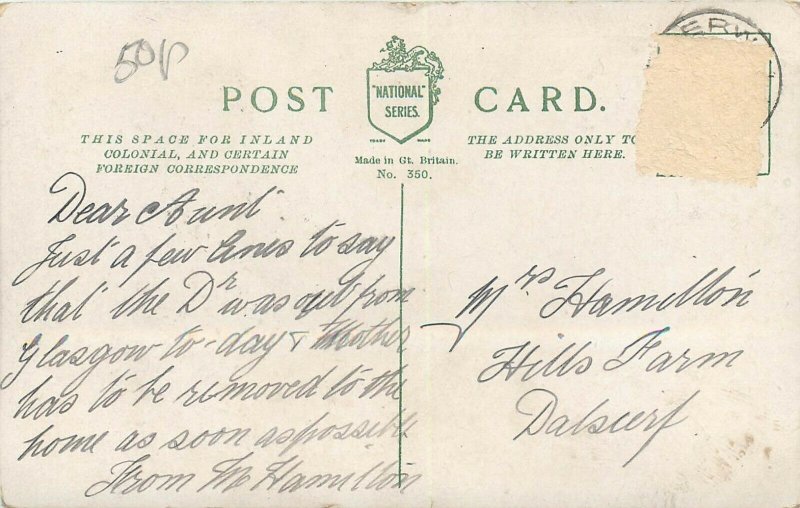 50p
ERW
POST CARD.
"NATIONAL"
SERIES.
TRADE MARK
THIS SPACE FOR INLAND
COLONIAL, AND CERTAIN
FOREIGN CORRESPONDENCE
Made in Gt. Britain.
No. 350.
THE ADDRESS ONLY TO
BE WRITTEN HERE.
Dear Aunt
Just a few lines to say
that the Dr was out from
Glasgow to-day & Mother
has to be removed to the
home as soon as possible
From M Hamilton
Mrs Hamilton
Hills Farm
Dalserf